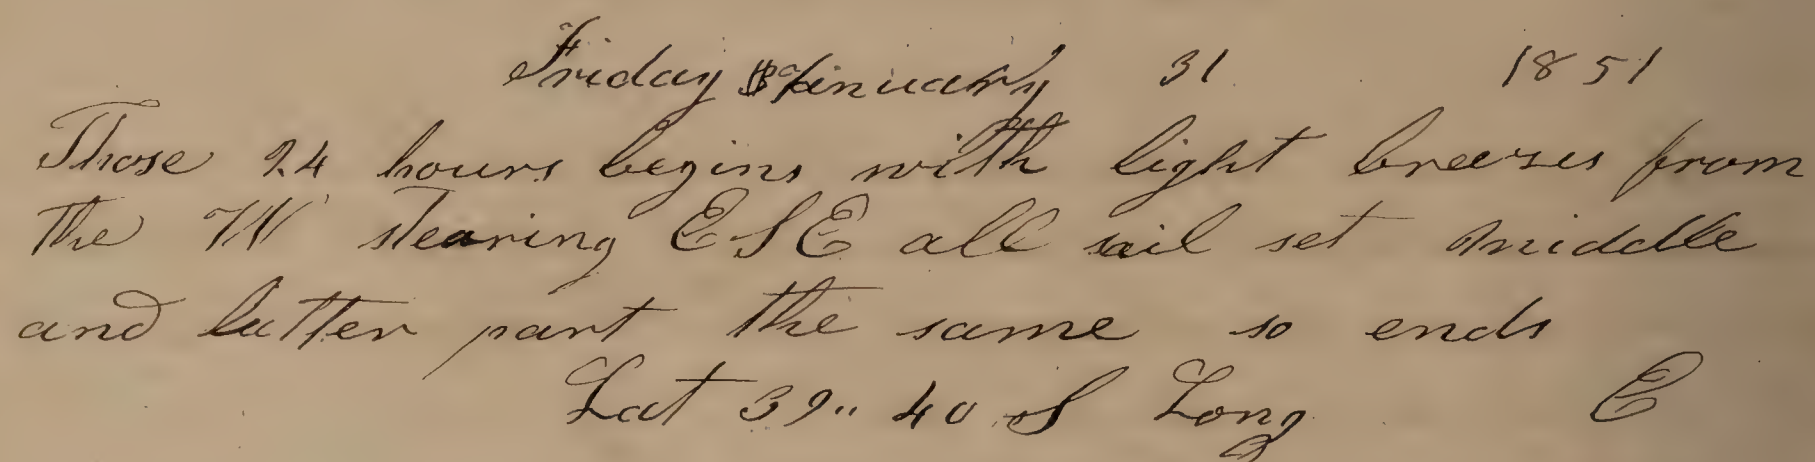 Friday January 31 1851
Those 24 hours begins with light breeses from
the W stearing ESE all sail set middle
and latter part the same so ends
Lat 39" 40 S Long E